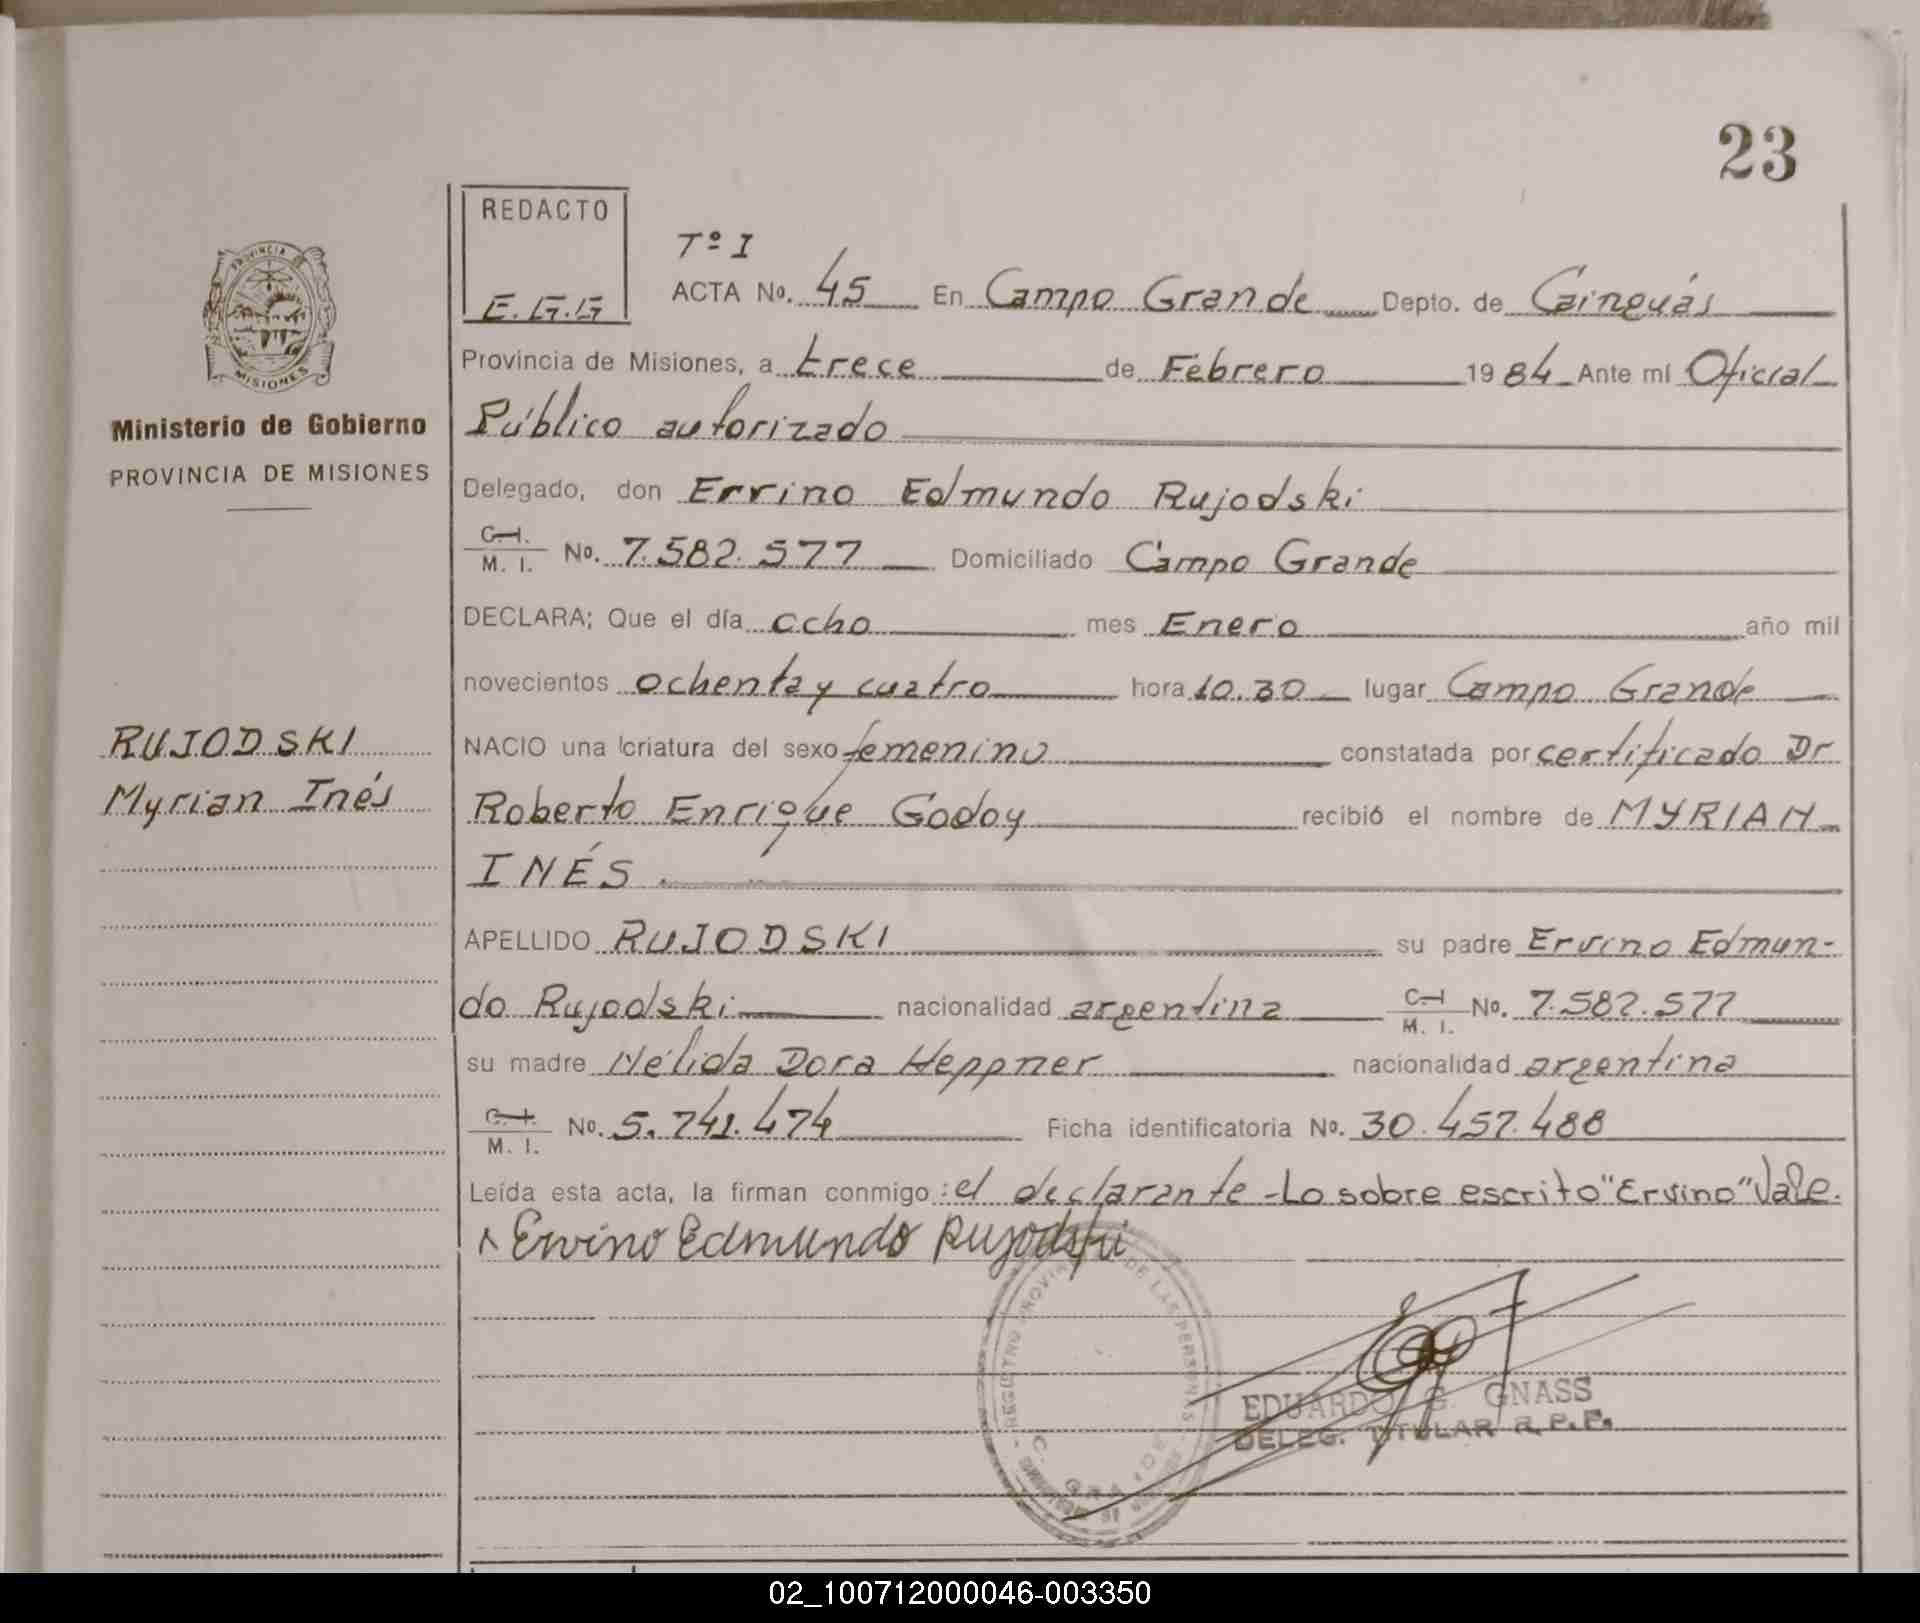 23
REDACTO
E.G.G
Tº I
ACTA No. 45 En Campo Grande Depto. de Cainguás
Provincia de Misiones, a trece de Febrero 1984 Ante mí Oficial
Público autorizado
PROVINCIA DE
MISIONES
Ministerio de Gobierno
PROVINCIA DE MISIONES
Delegado, don Errino Edmundo Rujodski
C.I.
M. I. No. 7.582.577 Domiciliado Campo Grande
DECLARA; Que el día ocho mes Enero año mil
novecientos ochenta y cuatro hora 10.30 lugar Campo Grande
RUJODSKI
Myrian Inés
NACIO una criatura del sexo femenino constatada por certificado Dr
Roberto Enrique Godoy recibió el nombre de MYRIAN
INÉS
APELLIDO RUJODSKI su padre Ervino Edmun-
do Rujodski nacionalidad argentina C.I. M. I. No. 7.582.577
su madre Nélida Dora Heppner nacionalidad argentina
C.I.
M. I. No. 5.741.474 Ficha identificatoria No. 30.457.488
Leída esta acta, la firman conmigo: el declarante - Lo sobre escrito "Ervino" Vale.
Ervino Edmundo Rujodski
REGISTRO PROVINCIAL DE LAS PERSONAS
EDUARDO G. GNASS
DELEG. TITULAR R.P.P.
02_100712000046-003350